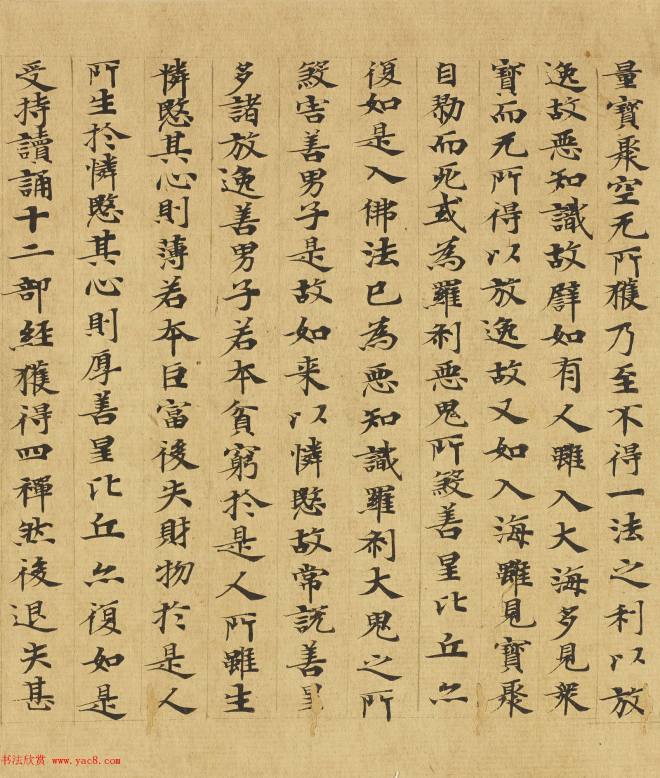 量寶聚空无所獲乃至不得一法之利以放
逸故惡知識故譬如有人雖入大海多見衆
寶而无所得以放逸故又如入海雖見寶聚
自勠而死或為羅刹惡鬼所煞善星比丘亦
復如是入佛法已為惡知識羅刹大鬼之所
煞害善男子是故如来以憐愍故常説善星
多諸放逸善男子若本貧窮於是人所雖生
憐愍其心則薄若本巨富後失財物於是人
所生於憐愍其心則厚善星比丘亦復如是
受持讀誦十二部經獲得四禪然後退失甚
书法欣赏 www.yac8.com